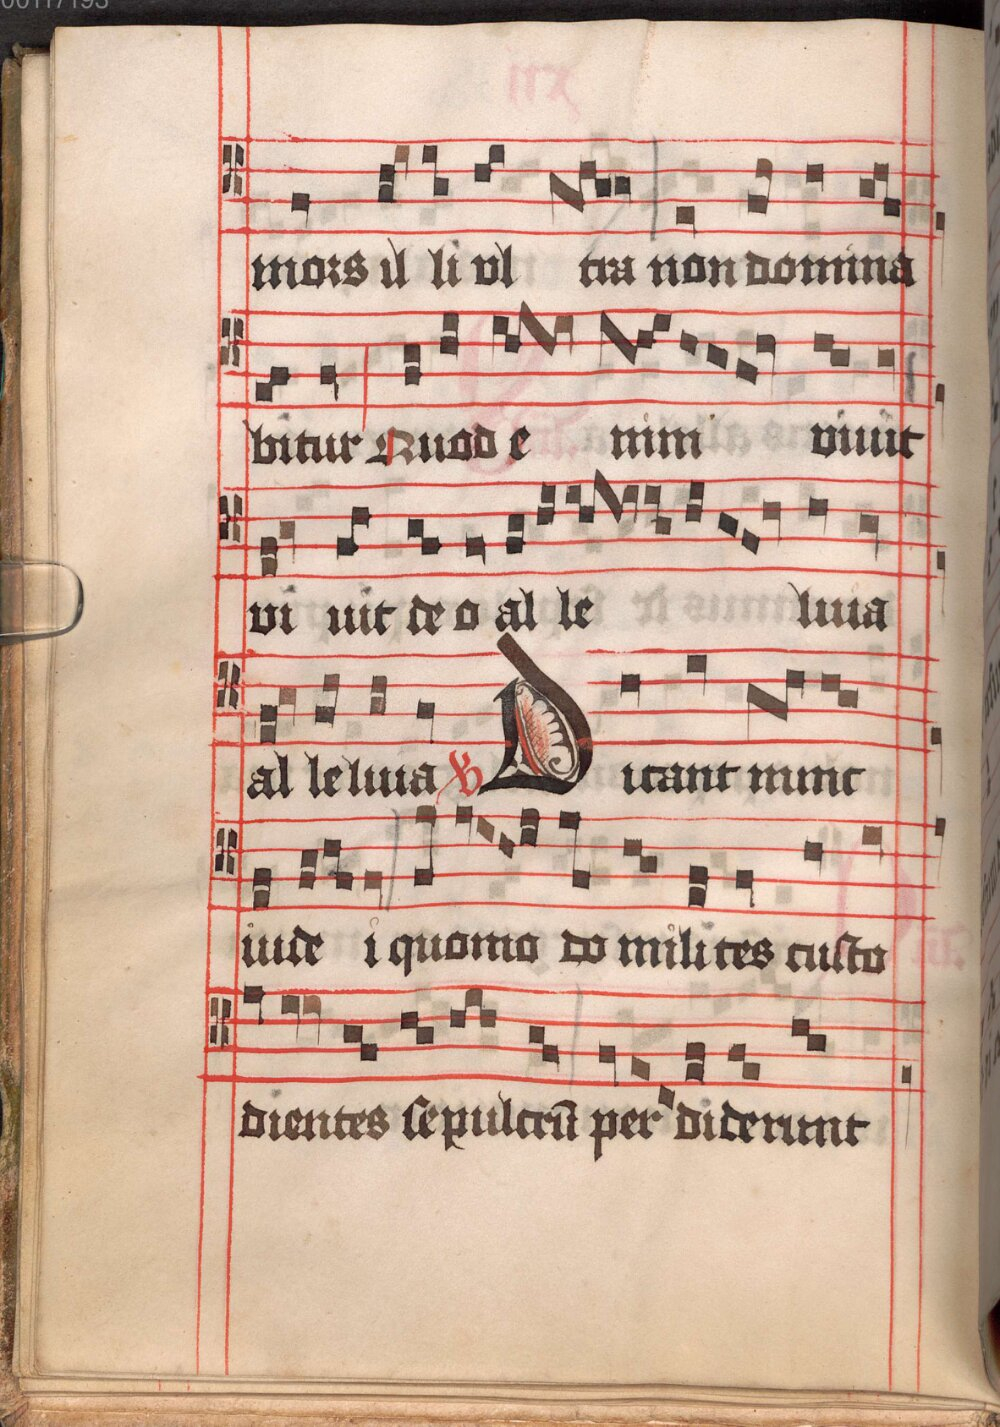 mors il li vl tra non domina
bitur Quod e nim viuit
vi uit de o al le luia
al le luia ℣ Dicant nunc
iude i quomo do milites custo
dientes sepulcrū per diderunt